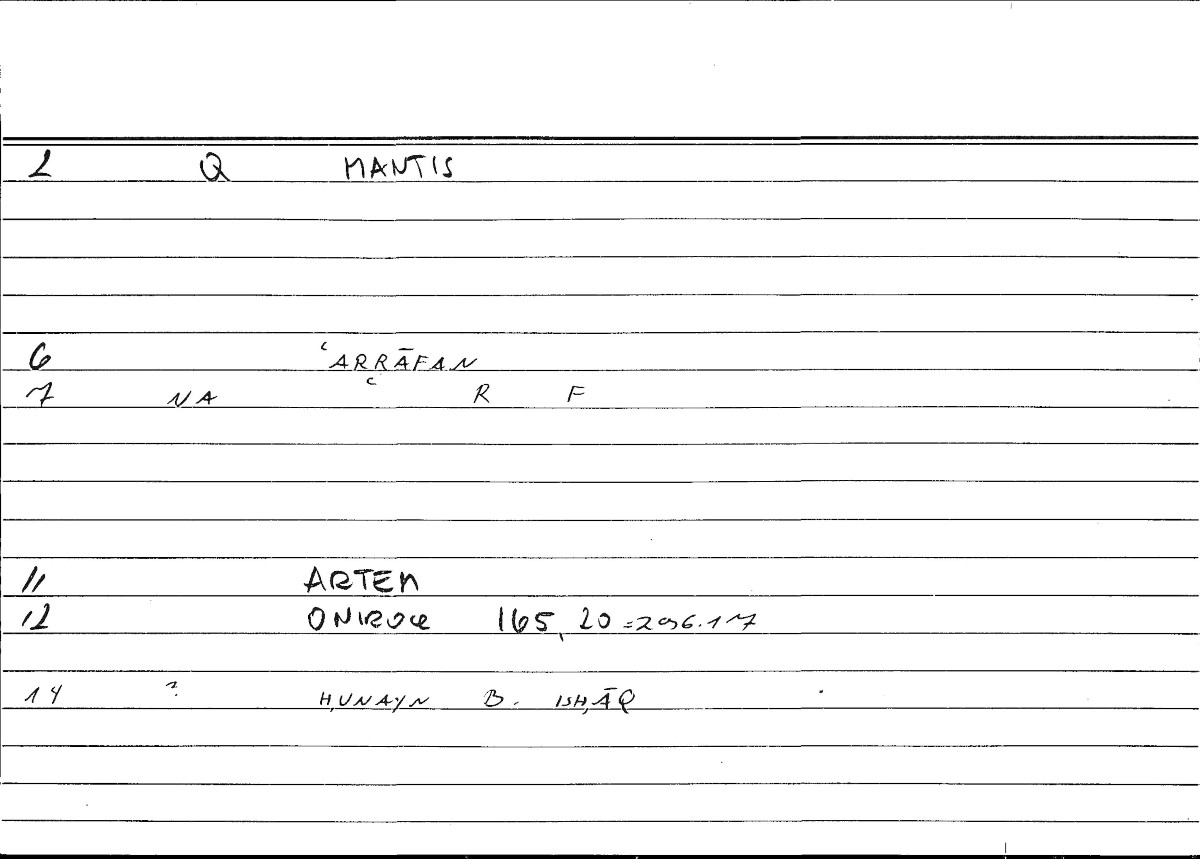 2 Q MANTIS
6 ʿARRĀFAN
7 NA ʿ R F
11 ARTEM
12 ONIROCR 165, 20 =296.17
14 ? ḤUNAYN B. ISḤĀQ